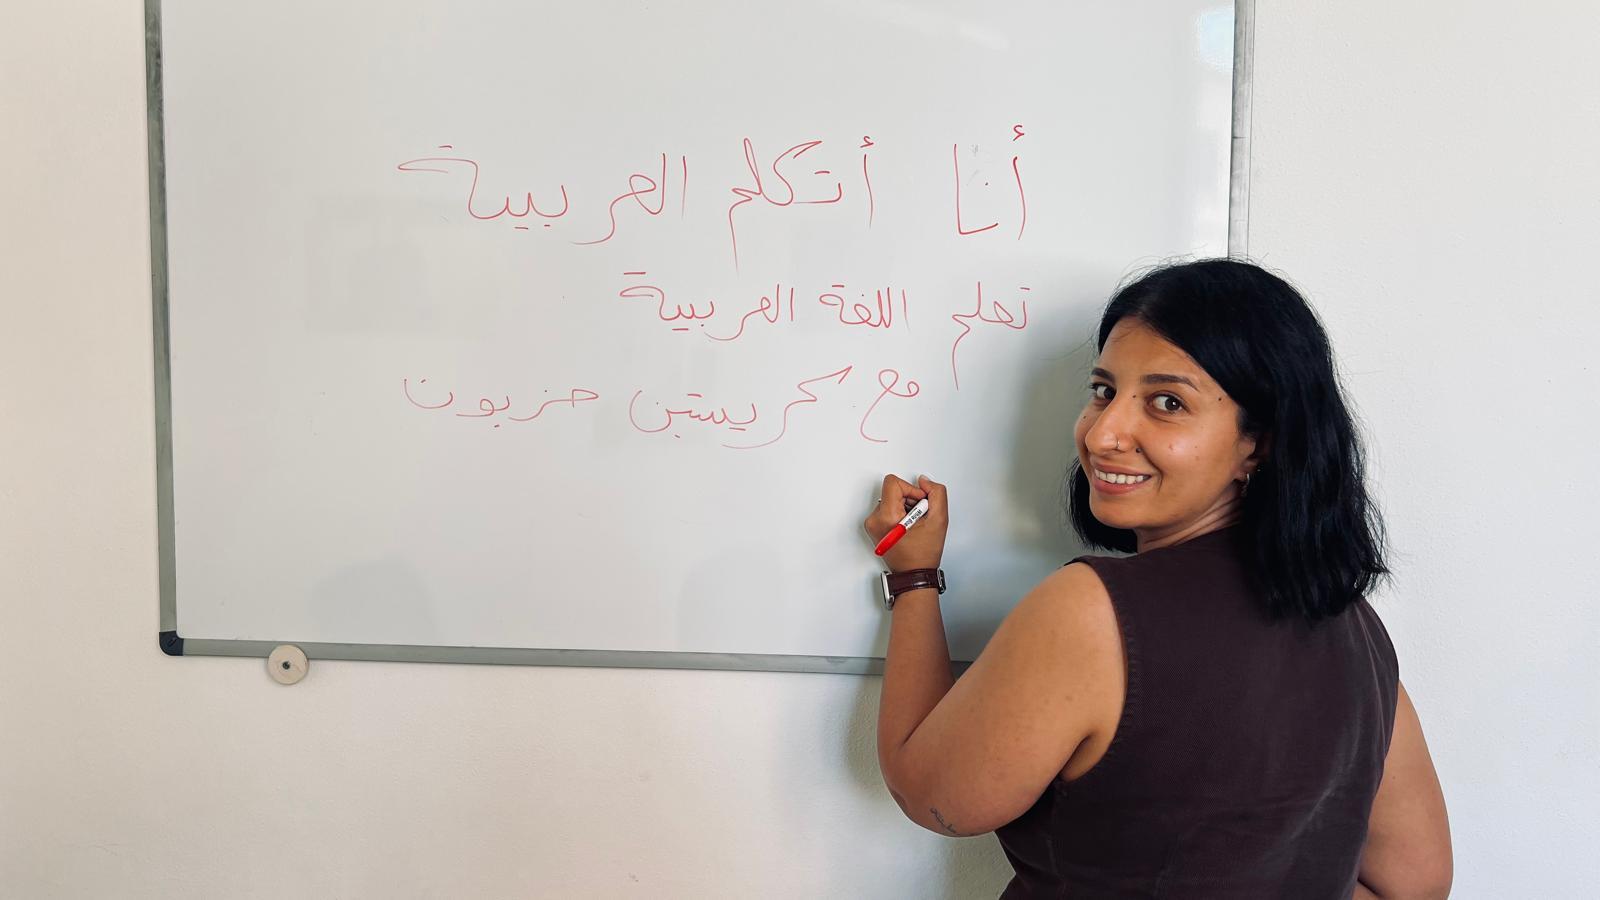 أنا أتكلم العربية
تعلم اللغة العربية
مع كريستين حزبون